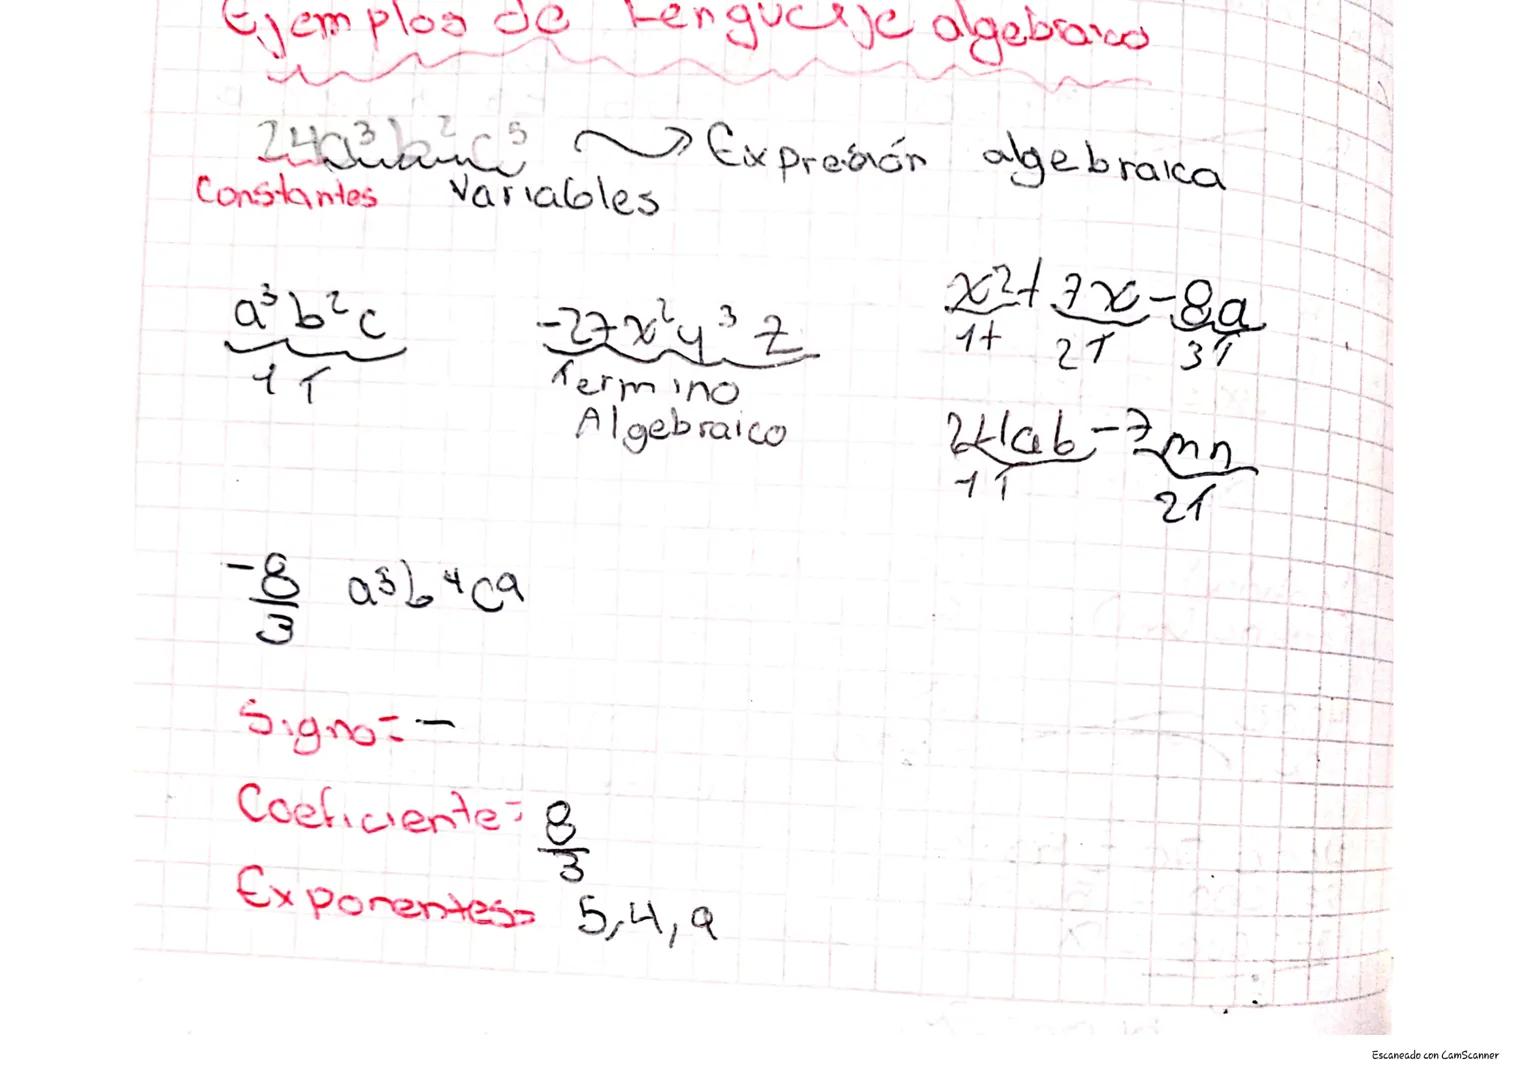 Ejemplos de Lenguaje algebraico
24a³b²c⁵ → Expresión algebraica
Constantes Variables
a³b²c
1T
-27x²y³z
Termino
Algebraico
x²+7x-8a
1t 2T 3T
24ab-7mn
1T 2T
-8/3 a⁵b⁴c⁹
Signo= -
Coeficiente= 8/3
Exponentes= 5,4,9
Escaneado con CamScanner